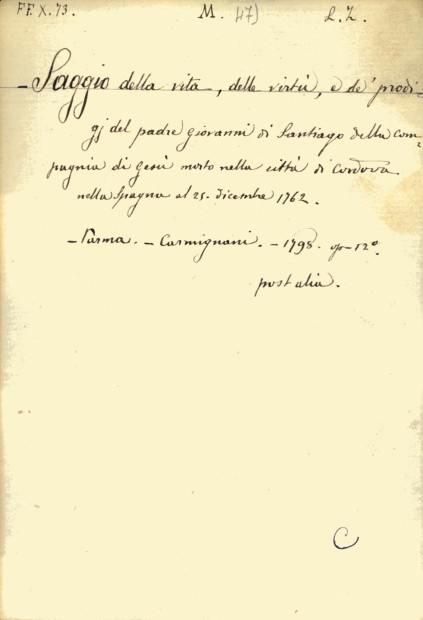 FF. X. 73. M. 47) L. Z.
Saggio della vita, delle virtù, e de' prodi-
gj del padre Giovanni di Santiago della Com=
pagnia di Gesù morto nella città di Cordova
nella Spagna al 25. Dicembre 1762.
– Parma. – Carmignani. – 1798. 12°.
post alia.
C